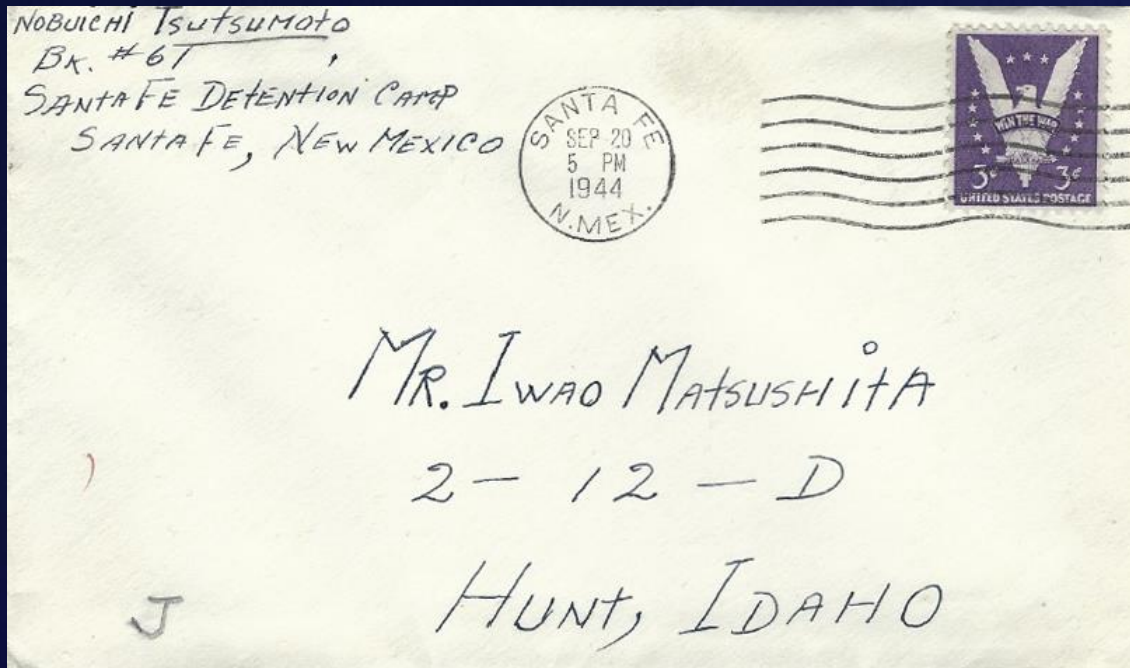 NOBUICHI TSUTSUMOTO
BK. #67
SANTA FE DETENTION CAMP
SANTA FE, NEW MEXICO
SANTA FE
SEP 20
5 PM
1944
N. MEX.
WIN THE WAR
3¢ 3¢
UNITED STATES POSTAGE
MR. IWAO MATSUSHITA
2 - 12 - D
HUNT, IDAHO
J